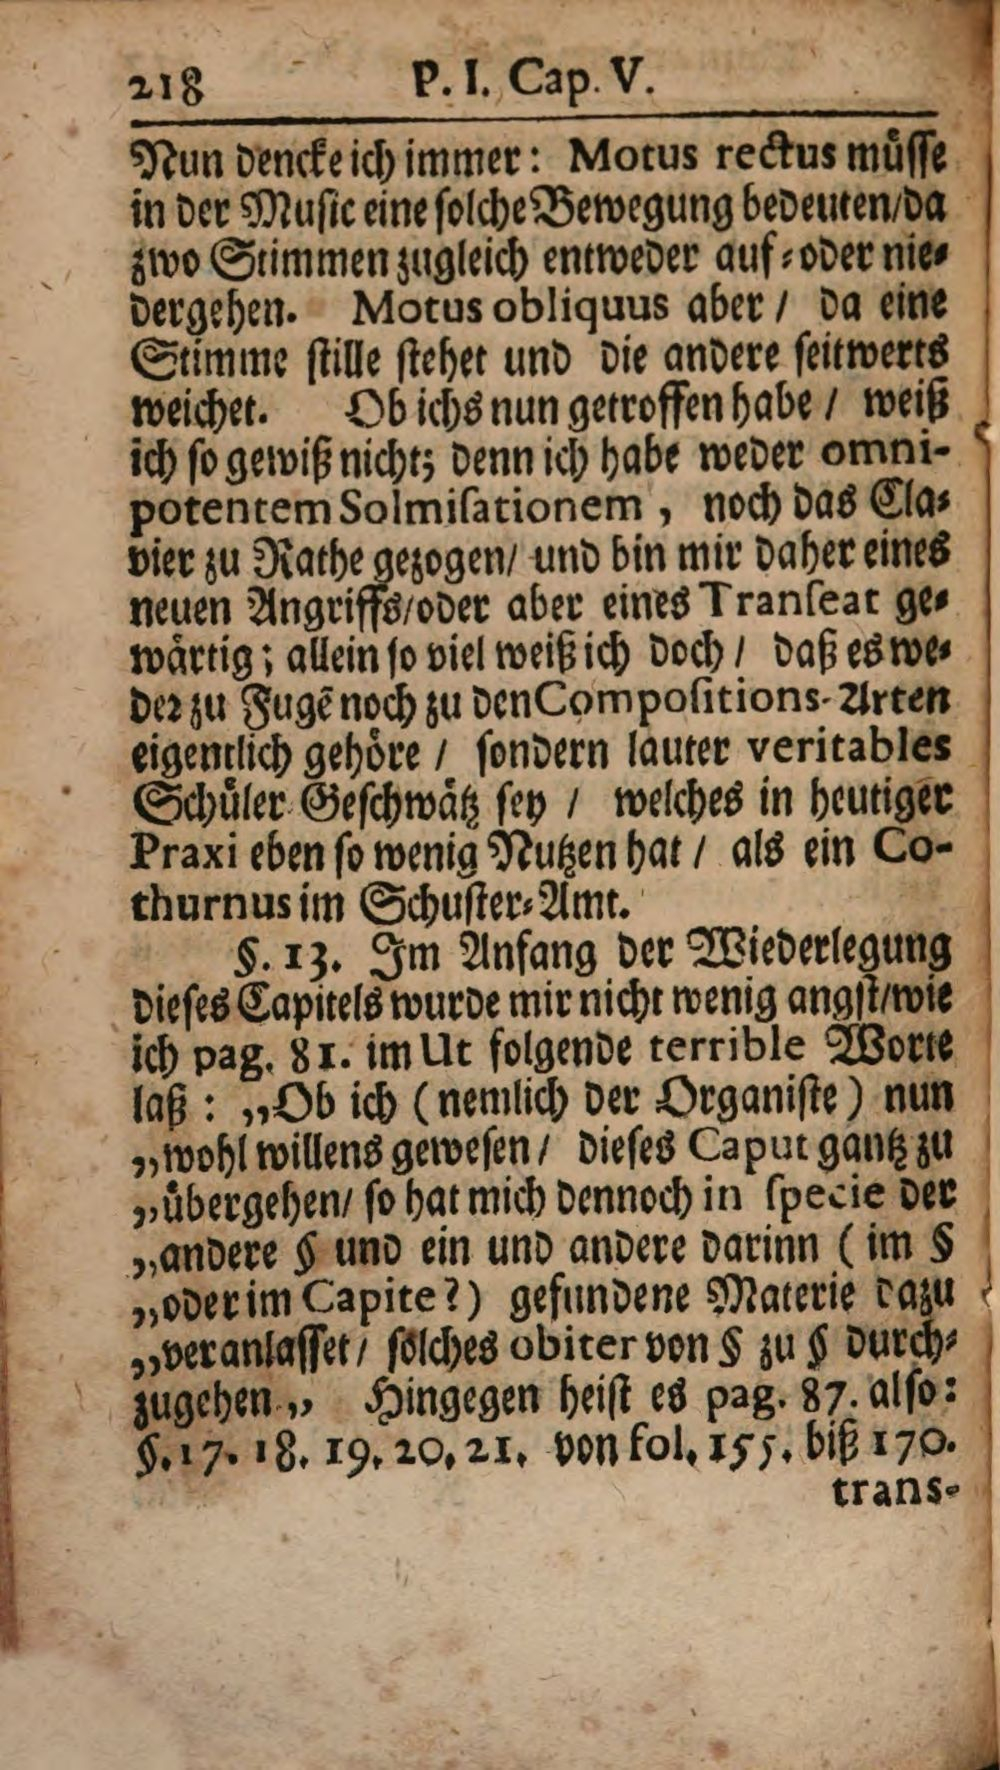 218 P. I. Cap. V.
Nun dencke ich immer: Motus rectus müsse
in der Music eine solche Bewegung bedeuten/da
zwo Stimmen zugleich entweder auf-oder nie-
dergehen. Motus obliquus aber / da eine
Stimme stille stehet und die andere seitwerts
weichet. Ob ichs nun getroffen habe / weiß
ich so gewiß nicht; denn ich habe weder omni-
potentem Solmisationem, noch das Cla-
vier zu Rathe gezogen/ und bin mir daher eines
neuen Angriffs/oder aber eines Transeat ge-
wärtig; allein so viel weiß ich doch / daß es we-
der zu Fugē noch zu den Compositions-Arten
eigentlich gehöre / sondern lauter veritables
Schüler-Geschwätz sey / welches in heutiger
Praxi eben so wenig Nutzen hat / als ein Co-
thurnus im Schuster-Amt.
§. 13. Im Anfang der Wiederlegung
dieses Capitels wurde mir nicht wenig angst/wie
ich pag. 81. im Ut folgende terrible Worte
laß: „Ob ich (nemlich der Organiste) nun
„wohl willens gewesen/ dieses Caput gantz zu
„übergehen/ so hat mich dennoch in specie der
„andere § und ein und andere darinn (im §
„oder im Capite?) gefundene Materie dazu
„veranlasset/ solches obiter von § zu § durch-
zugehen.„ Hingegen heist es pag. 87. also:
§. 17. 18. 19. 20. 21. von fol. 155. biß 170.
trans-